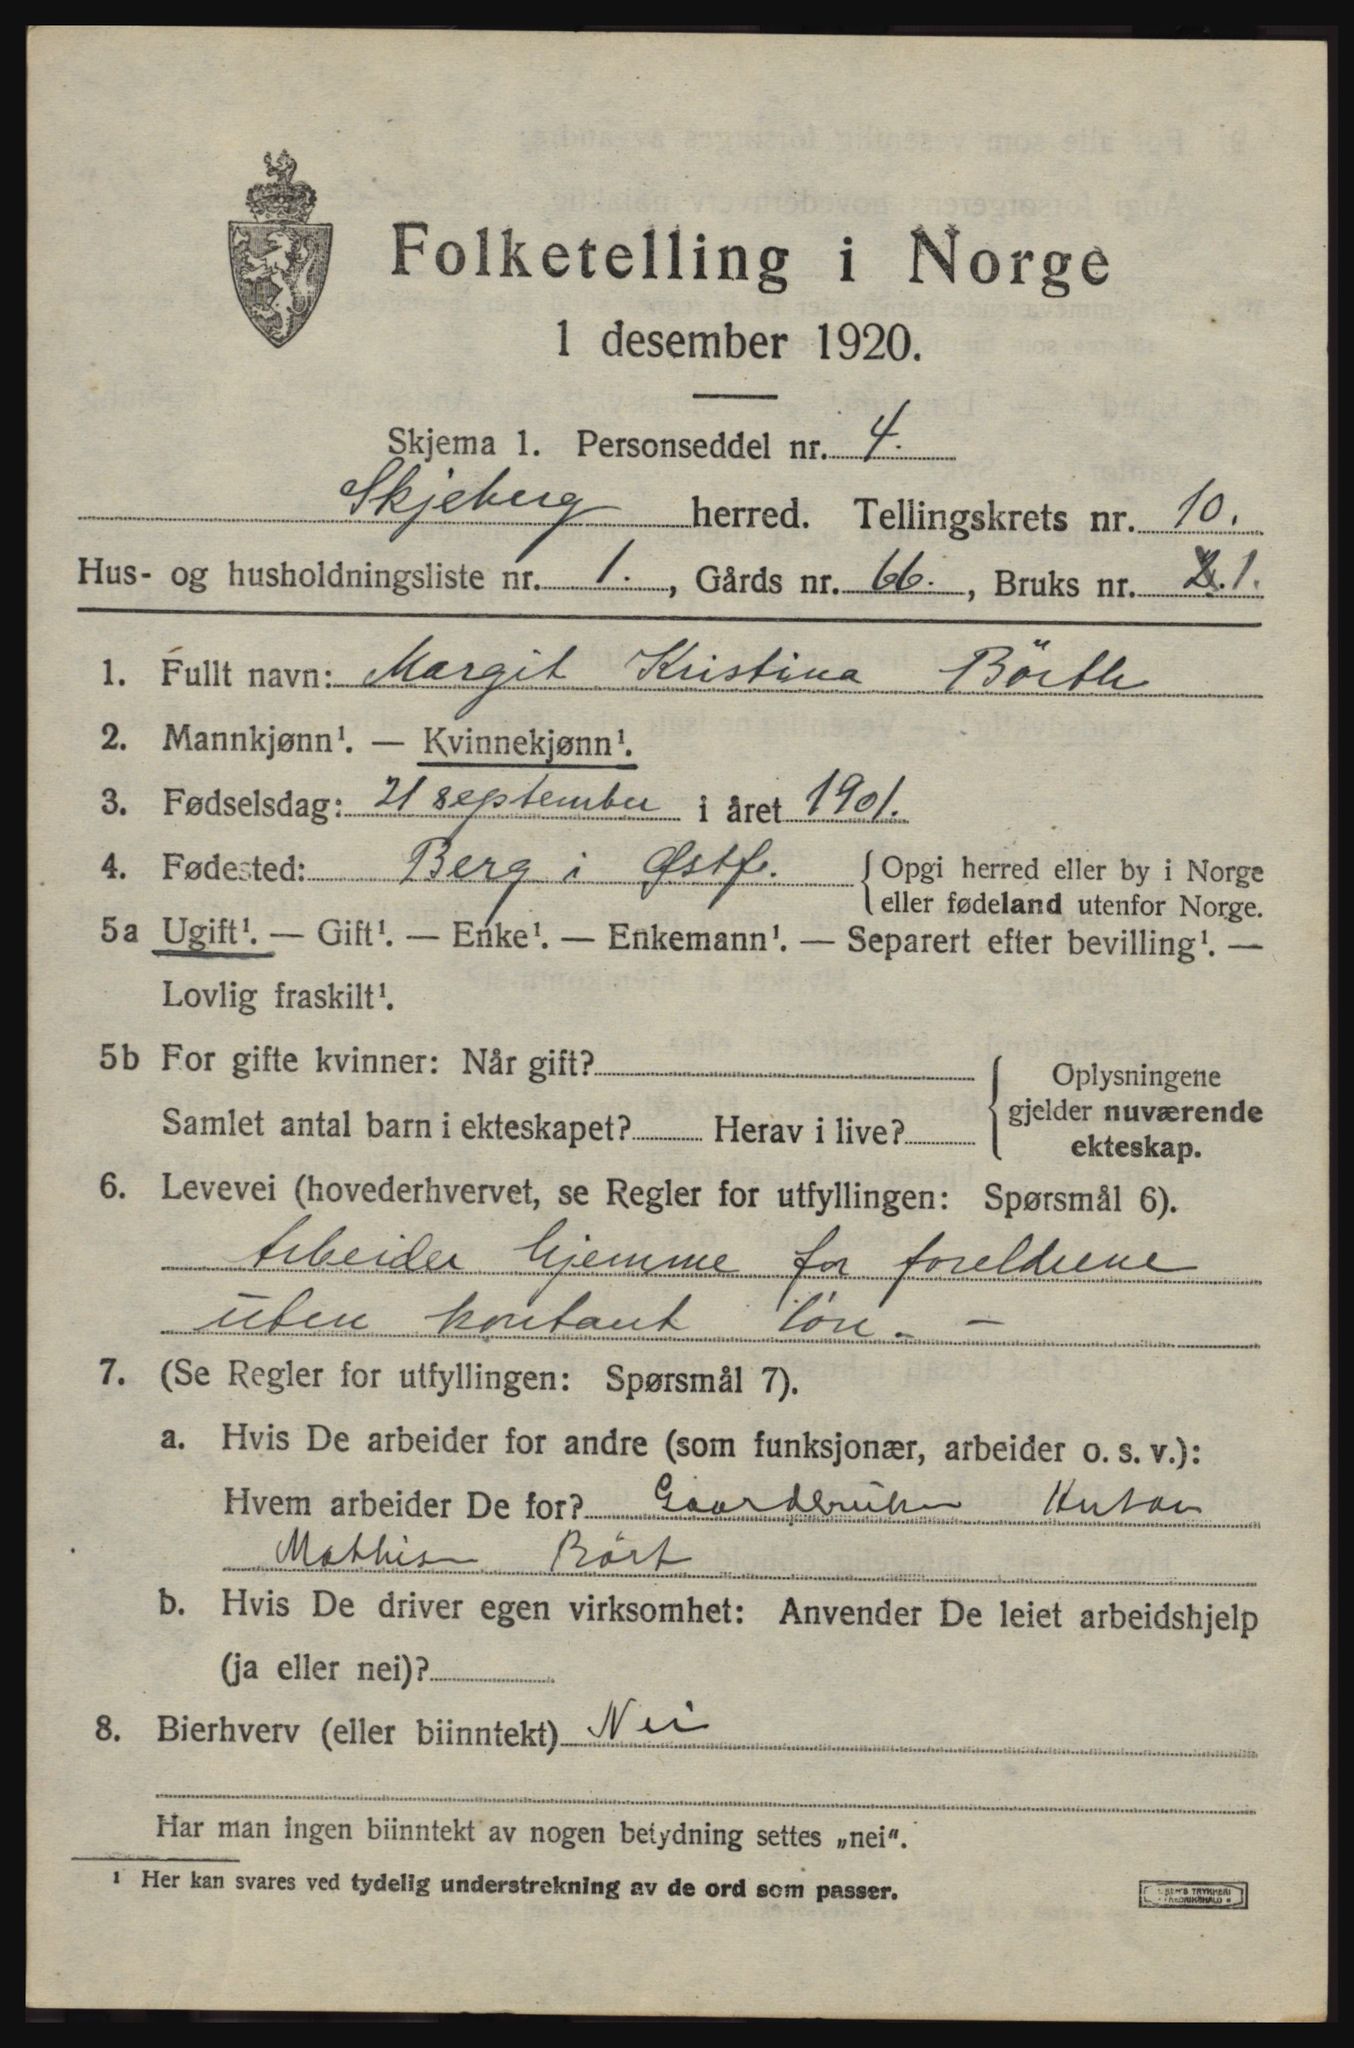 Folketelling i Norge
1 desember 1920.
Skjema 1. Personseddel nr. 4.
Skjeberg herred. Tellingskrets nr. 10.
Hus- og husholdningsliste nr. 1., Gårds nr. 66., Bruks nr. 2.1.
1. Fullt navn: Margit Kristina Börth
2. Mannkjønn¹. — Kvinnekjønn¹.
3. Fødselsdag: 21 september i året 1901.
4. Fødested: Berg i Østf. Opgi herred eller by i Norge
eller fødeland utenfor Norge.
5a Ugift¹. — Gift¹. — Enke¹. — Enkemann¹. — Separert efter bevilling¹. —
Lovlig fraskilt¹.
5b For gifte kvinner: Når gift? Oplysningene
gjelder nuværende
Samlet antal barn i ekteskapet? Herav i live?
ekteskap.
6. Levevei (hovederhvervet, se Regler for utfyllingen: Spørsmål 6).
Arbeider hjemme for foreldrene
uten kontant lön. —
7. (Se Regler for utfyllingen: Spørsmål 7).
a. Hvis De arbeider for andre (som funksjonær, arbeider o. s. v.):
Hvem arbeider De for? Gaardbruker
Mathisen Bört
b. Hvis De driver egen virksomhet: Anvender De leiet arbeidshjelp
(ja eller nei)?
8. Bierhverv (eller biinntekt) Nei
Har man ingen biinntekt av nogen betydning settes „nei".
¹ Her kan svares ved tydelig understrekning av de ord som passer.
TRYKKERI
FREDRIKSHALD